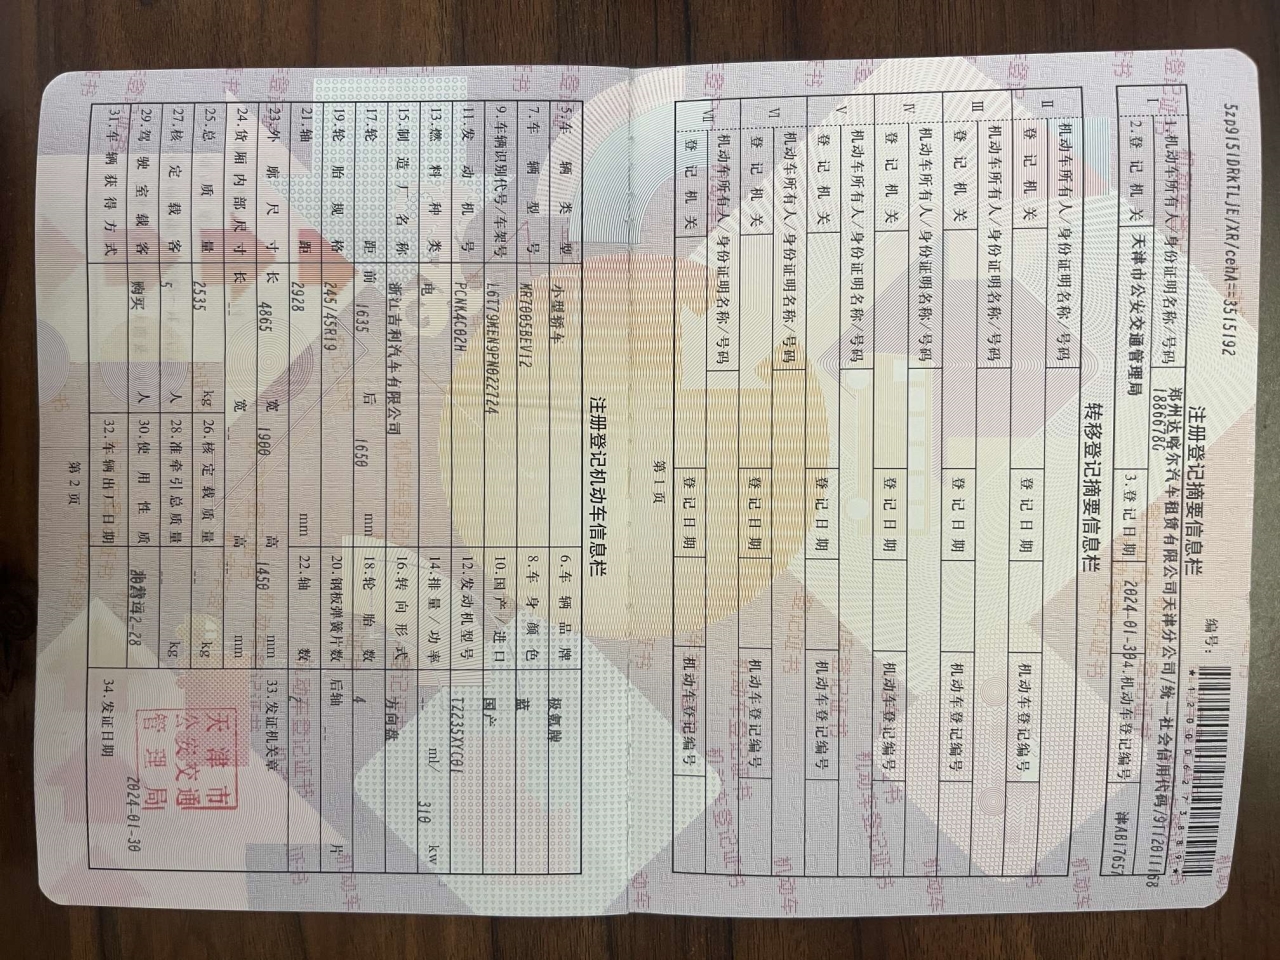 5zp9151DRKTLJE/XR/cehA==3515192
编号：
*120006273889*
注册登记摘要信息栏
I
1.机动车所有人/身份证明名称/号码 郑州达喀尔汽车租赁有限公司天津分公司/统一社会信用代码/911201116818866786
2.登记机关 天津市公安交通管理局 3.登记日期 2024-01-30 4.机动车登记编号 津AB17657
转移登记摘要信息栏
II 机动车所有人/身份证明名称/号码
登记机关 登记日期 机动车登记编号
III 机动车所有人/身份证明名称/号码
登记机关 登记日期 机动车登记编号
IV 机动车所有人/身份证明名称/号码
登记机关 登记日期 机动车登记编号
V 机动车所有人/身份证明名称/号码
登记机关 登记日期 机动车登记编号
VI 机动车所有人/身份证明名称/号码
登记机关 登记日期 机动车登记编号
VII 机动车所有人/身份证明名称/号码
登记机关 登记日期 机动车登记编号
第1页
注册登记机动车信息栏
5.车辆类型 小型轿车 6.车辆品牌 极氪牌
7.车辆型号 MR7005BEV12 8.车身颜色 蓝
9.车辆识别代号/车架号 L6T79MEN9PN022724 10.国产/进口 国产
11.发动机号 PCNK4C02H 12.发动机型号 TZ235XYC01
13.燃料种类 电 14.排量/功率 -- ml/ 310 kw
15.制造厂名称 浙江吉利汽车有限公司 16.转向形式 方向盘
17.轮距 前 1635 后 1650 mm 18.轮胎数 4
19.轮胎规格 245/45R19 20.钢板弹簧片数 后轴 -- 片
21.轴距 2928 mm 22.轴数 2
23.外廓尺寸 长 4865 宽 1900 高 1450 mm 33.发证机关章
24.货厢内部尺寸 长 -- 宽 -- 高 -- mm
25.总质量 2535 kg 26.核定载质量 -- kg
27.核定载客 5 人 28.准牵引总质量 -- kg
29.驾驶室载客 -- 人 30.使用性质
31.车辆获得方式 购买 32.车辆出厂日期
天津市公安交通管理局
34.发证日期 2024-01-30
第2页